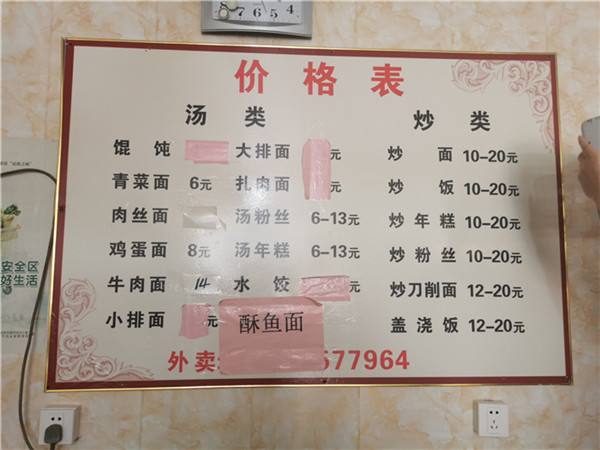 7 6 5 4
价格表
汤类 炒类
馄饨 大排面 元 炒面 10-20元
青菜面 6元 扎肉面 元 炒饭 10-20元
肉丝面 汤粉丝 6-13元 炒年糕 10-20元
鸡蛋面 8元 汤年糕 6-13元 炒粉丝 10-20元
牛肉面 14 水饺 炒刀削面 12-20元
小排面 元 酥鱼面 盖浇饭 12-20元
外卖: 577964
安全区
好生活